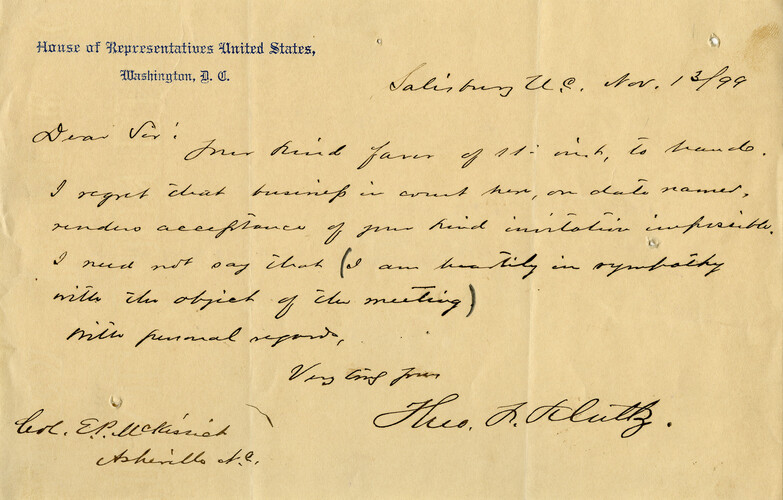 House of Representatives United States,
Washington, D. C.
Salisbury N.C. Nov. 13/99
Dear Sir:
Your kind favor of 11. inst, to hand.
I regret that business in court here, on date named,
renders acceptance of your kind invitation impossible.
I need not say that (I am heartily in sympathy
with the object of the meeting)
With personal regards,
Very truly yours
Theo. F. Kluttz.
Col. E.P. McKissick
Asheville N.C.